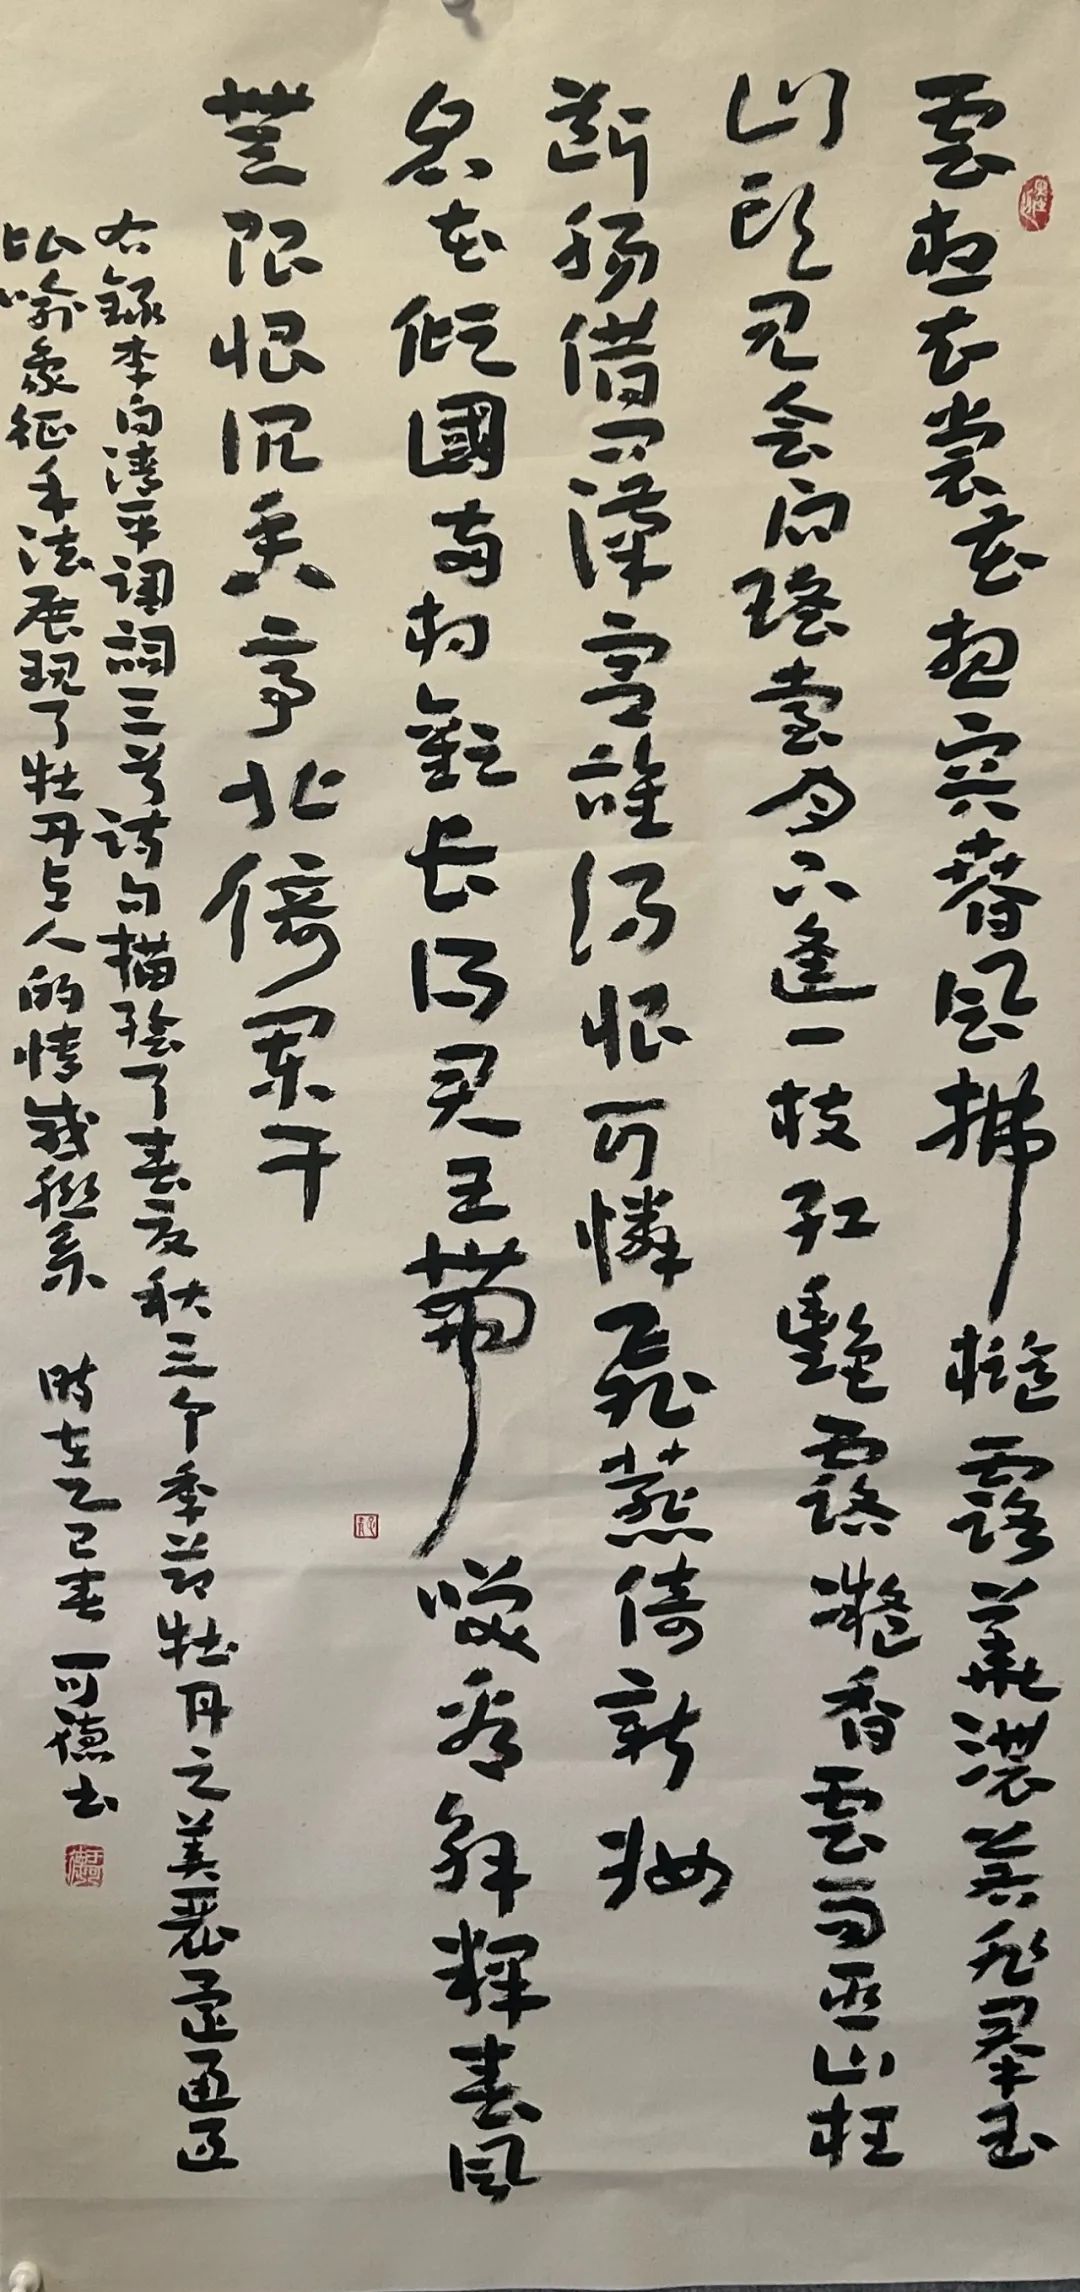 雲想衣裳花想容春風拂檻露華濃若非羣玉
山頭見會向瑤臺月下逢一枝紅艷露凝香雲雨巫山枉
斷腸借問漢宮誰得似可憐飛燕倚新妝
名花傾國兩相歡長得君王帶笑看解釋春風
無限恨沉香亭北倚闌干
右錄李白清平調詞三首詩句描繪了春夏秋三个季节牡丹之美麗還通過
比喻象征手法展現了牡丹与人的情感聯系 時在乙巳春 可德书